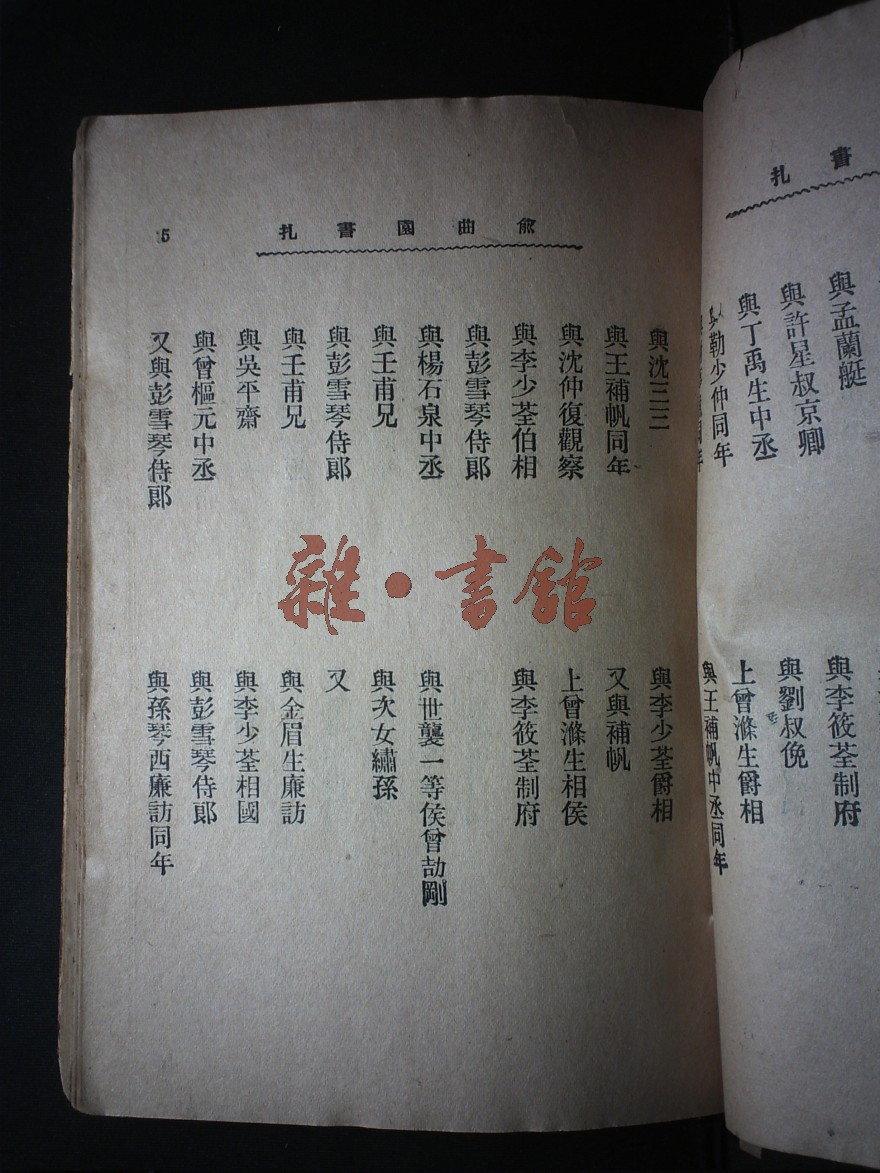 書札
與孟蘭艇
與許星叔京卿
與丁禹生中丞
與勒少仲同年
與李筱荃制府
與劉叔俛
上曾滌生爵相
與王補帆中丞同年
俞曲園書札
5
與沈三三
與王補帆同年
與沈仲復觀察
與李少荃伯相
與彭雪琴侍郎
與楊石泉中丞
與壬甫兄
與彭雪琴侍郎
與壬甫兄
與吳平齋
與曾樞元中丞
又與彭雪琴侍郎
與李少荃爵相
又與補帆
上曾滌生相侯
與李筱荃制府
與世襲一等侯曾劼剛
與次女繡孫
又
與金眉生廉訪
與李少荃相國
與彭雪琴侍郎
與孫琴西廉訪同年
雜·書館